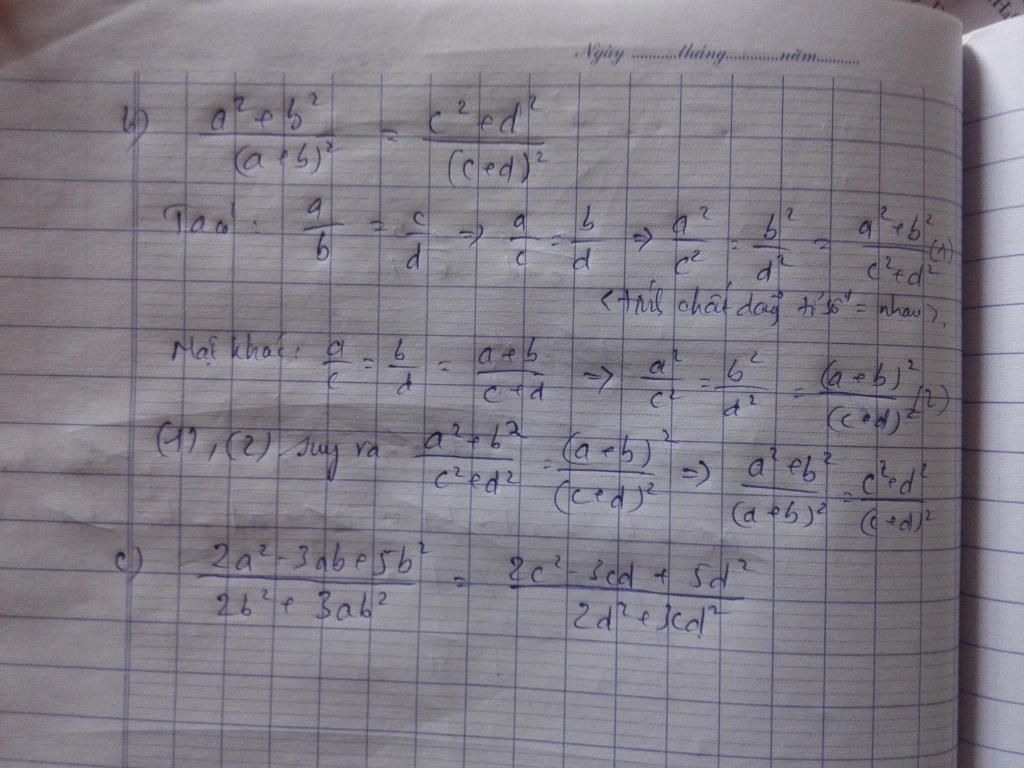 Ngày ...........tháng.............năm..........
b) (a² + b²)/(a+b)² = (c² + d²)/(c+d)²
Ta có : a/b = c/d => a/c = b/d => a²/c² = b²/d² = (a²+b²)/(c²+d²) (1)
<tính chất dãy tỉ số = nhau>.
Mặt khác: a/c = b/d = (a+b)/(c+d) => a²/c² = b²/d² = (a+b)²/(c+d)² (2)
(1), (2) suy ra (a²+b²)/(c²+d²) = (a+b)²/(c+d)² => (a²+b²)/(a+b)² = (c²+d²)/(c+d)²
c) (2a² - 3ab + 5b²)/(2b² + 3ab²) = (2c² - 3cd + 5d²)/(2d² + 3cd²)